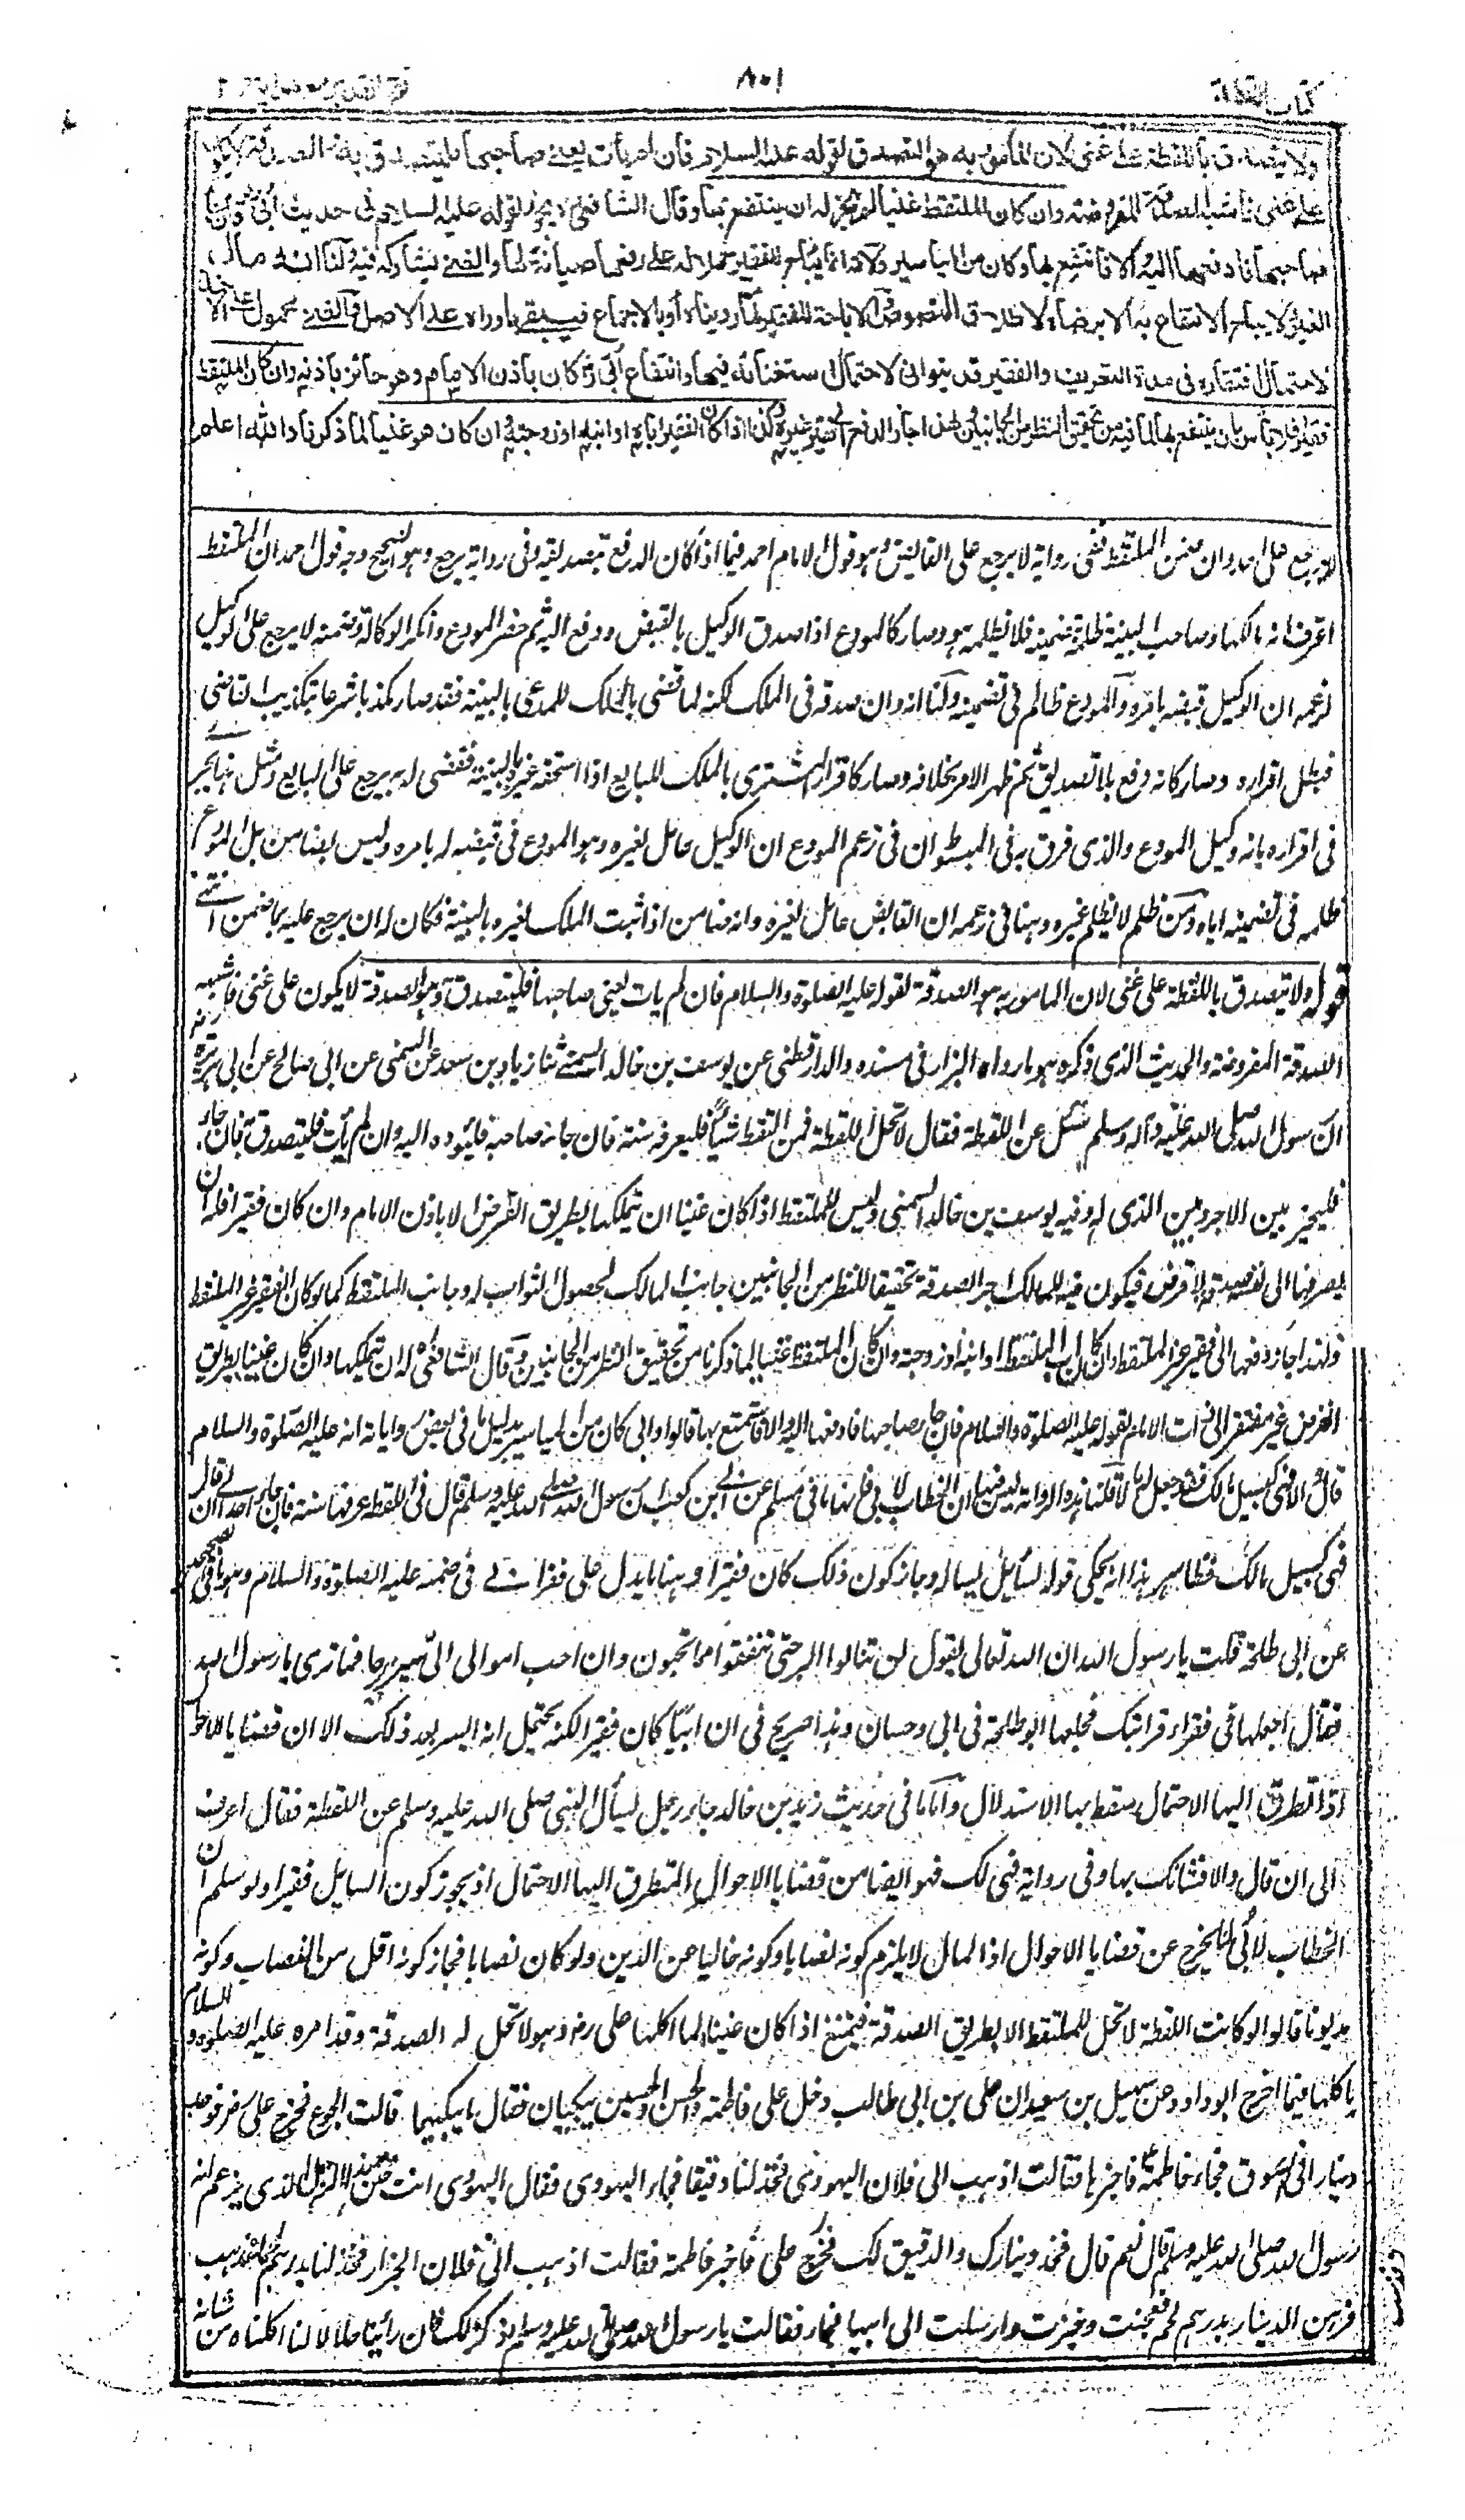 كتاب اللقطة
٨٠١
فتح القدير مع هداية ج ٢
ولا يتصدق باللقطة على غني لان المأمور به هو التصدق لقوله عليه السلام فان لم يأت يعني صاحبها فليتصدق به والصدقة لا يكون
على غني فاشبه الصدقة المفروضة وان كان الملتقط غنيا لم يجز له ان ينتفع بها وقال الشافعي رح يجوز لقوله عليه السلام في حديث ابي رض فان جاء
صاحبها فادفعها اليه والا فانتفع بها وكان من المياسير ولانه انما يباح للفقير حملا له على رفعها صيانة لها والغني يشاركه فيه ولنا انه مال
الغير فلا يباح الانتفاع به الا برضاه لاطلاق النصوص والاباحة للفقير لما رويناه او بالاجماع فيبقى ما وراه على الاصل والغني محمول على الاخذ
لاحتمال افتقاره في مدة التعريف والفقير قد يتوانى لاحتمال استغنائه فيها وانتفاع ابي رض كان باذن الامام وهو جائز باذنه وان كان الملتقط
فقيرا فلا بأس بان ينتفع بها لما فيه من تحقيق النظر من الجانبين ولهذا جاز الدفع الى فقير غيره وكذا اذا كان الفقير اباه او ابنه او زوجته وان كان هو غنيا لما ذكرنا والله اعلم
لا يرجع على احد وان ضمن الملتقط ففي رواية لا يرجع على القابض وهو قول الامام احمد فيما اذا كان الدفع بتصديقه وفي رواية يرجع وهو الصحيح وجه قول احمد ان الملتقط
اعترف انه مالكها وصاحب البينة ظلمه بتضمينه فلا يظلمه هو وصار كالمودع اذا صدق الوكيل بالقبض ودفع اليه ثم حضر المودع وانكر الوكالة وضمنه لا يرجع على الوكيل
لزعمه ان الوكيل قبضه بامره والمودع ظالم في تضمينه ولنا انه وان صدقه في الملك لكنه لما قضى بالملك للمدعي بالبينة فقد صار مكذبا شرعا بتكذيب القاضي
فبطل اقراره وصار كانه دفع بلا تصديق ثم ظهر الامر بخلافه وصار كاقرار المشتري بالملك للبايع اذا استحقه غيره بالبينة فقضى له به يرجع على البايع ومثل هذا يجر
في اقراره بانه وكيل المودع والذي فرق به في المبسوط ان في زعم المودع ان الوكيل عامل لغيره وهو المودع في قبضه له بامره وليس بضامن بل المودع
ظلمه في تضمينه اياه ومن ظلم لا يظلم غيره وهنا في زعمه ان القابض عامل لنفسه وانه ضامن اذا ثبت الملك لغيره بالبينة فكان له ان يرجع عليه بما ضمن انتهى
قوله ولا يتصدق باللقطة على غني لان المامور به هو الصدقة لقوله عليه الصلوة والسلام فان لم يات يعني صاحبها فليتصدق به والصدقة لا يكون على غني فاشبه
الصدقة المفروضة والحديث الذي ذكره هو ما رواه البزار في مسنده والدارقطني عن يوسف بن خالد السمتي ثنا زياد بن سعد عن السمي عن ابي صالح عن ابي هريرة رض
ان رسول الله صلى الله عليه وآله وسلم سئل عن اللقطة فقال لا تحل اللقطة فمن التقط شيئا فليعرفه سنة فان جاءه صاحبه فليؤده اليه وان لم يأت فليتصدق فان جاء
فليخير بين الاجر وبين الذي له وفيه يوسف بن خالد السمتي وليس للملتقط اذا كان غنيا ان يتملكها بطريق القرض الا باذن الامام وان كان فقيرا فله ان
يصرفها الى نفسه صدقة لا قرض فيكون فيه للمالك اجر الصدقة تحقيقا للنظر من الجانبين جانب المالك لحصول الثواب له وجانب الملتقط كما لو كان الفقير غير الملتقط
ولهذا جاز دفعها الى فقير غير الملتقط وان كان اب الملتقط او ابنه او زوجته وان كان الملتقط غنيا لما ذكرنا من تحقيق النظر من الجانبين وقال الشافعي رح له ان يتملكها وان كان غنيا بطريق
القرض غير مفتقر الى اذن الامام لقوله عليه الصلوة والسلام فان جاء صاحبها فادفعها اليه والا فاستمتع بها قالوا وابي كان من المياسير بدليل ما في بعض رواياته انه عليه الصلوة والسلام
قال والا فهي كسبيل مالك فقد جعل له مالا قلنا هذه الرواية ليس فيها ان الخطاب لابي فانها في مسلم عن ابي بن كعب ان رسول الله صلى الله عليه وسلم قال في اللقطة عرفها سنة فان جاء احد الى ان قال
فهي كسبيل مالك فظاهر هذا انه يحكي قوله لسائل يساله وجاز كون ذلك كان فقيرا وهنا ما يدل على فقر ابي في زمنه عليه الصلوة والسلام وهو ما في الصحيحين
عن ابي طلحة قلت يا رسول الله ان الله تعالى يقول لن تنالوا البر حتى تنفقوا مما تحبون وان احب اموالي الي بيرحا فما ترى يا رسول الله
فقال اجعلها في فقراء قرابتك فجعلها ابو طلحة في ابي وحسان وهذا صريح في ان ابيا كان فقيرا لكنه يحتمل انه ايسر بعد ذلك الا ان قضايا الاحوال
اذا تطرق اليها الاحتمال سقط بها الاستدلال واما ما في حديث زيد بن خالد جاء رجل يسأل النبي صلى الله عليه وسلم عن اللقطة فقال اعرف
الى ان قال والا فشانك بها وفي رواية فهي لك فهو ايضا من قضايا الاحوال المتطرق اليها الاحتمال اذ يجوز كون السايل فقيرا ولو سلم ان
الخطاب لابي لم يخرج عن قضايا الاحوال اذ المال لا يلزم كونه نصابا وكونه خاليا عن الدين ولو كان نصابا فجاز كونه اقل من النصاب وكونه
مديونا قالوا لو كانت اللقطة لا تحل للملتقط الا بطريق الصدقة فيمتنع اذا كان غنيا لما اكلها علي رض وهو لا تحل له الصدقة وقد امره عليه الصلوة والسلام
باكلها فيما اخرج ابو داود عن سهيل بن سعيد ان علي بن ابي طالب دخل على فاطمة والحسن والحسين يبكيان فقال ما يبكيهما قالت الجوع فخرج علي رض فوجد
دينارا في السوق فجاء فاطمة رض فاخبرها فقالت اذهب الى فلان اليهودي فخذ لنا دقيقا فجاء اليهودي فقال اليهودي انت ختن هذا الرجل الذي يزعم انه
رسول الله صلى الله عليه وسلم قال نعم قال فخذ دينارك والدقيق لك فخرج علي رض فاخبر فاطمة فقالت اذهب الى فلان الجزار فخذ لنا بدرهم لحما فذهب
فرهن الدينار بدرهم لحم فعجنت وخبزت وارسلت الى ابيها فجاء فقالت يا رسول الله صلى الله عليه وسلم نذكر لك فان رأيتنا حلالا لنا اكلناه من شانه